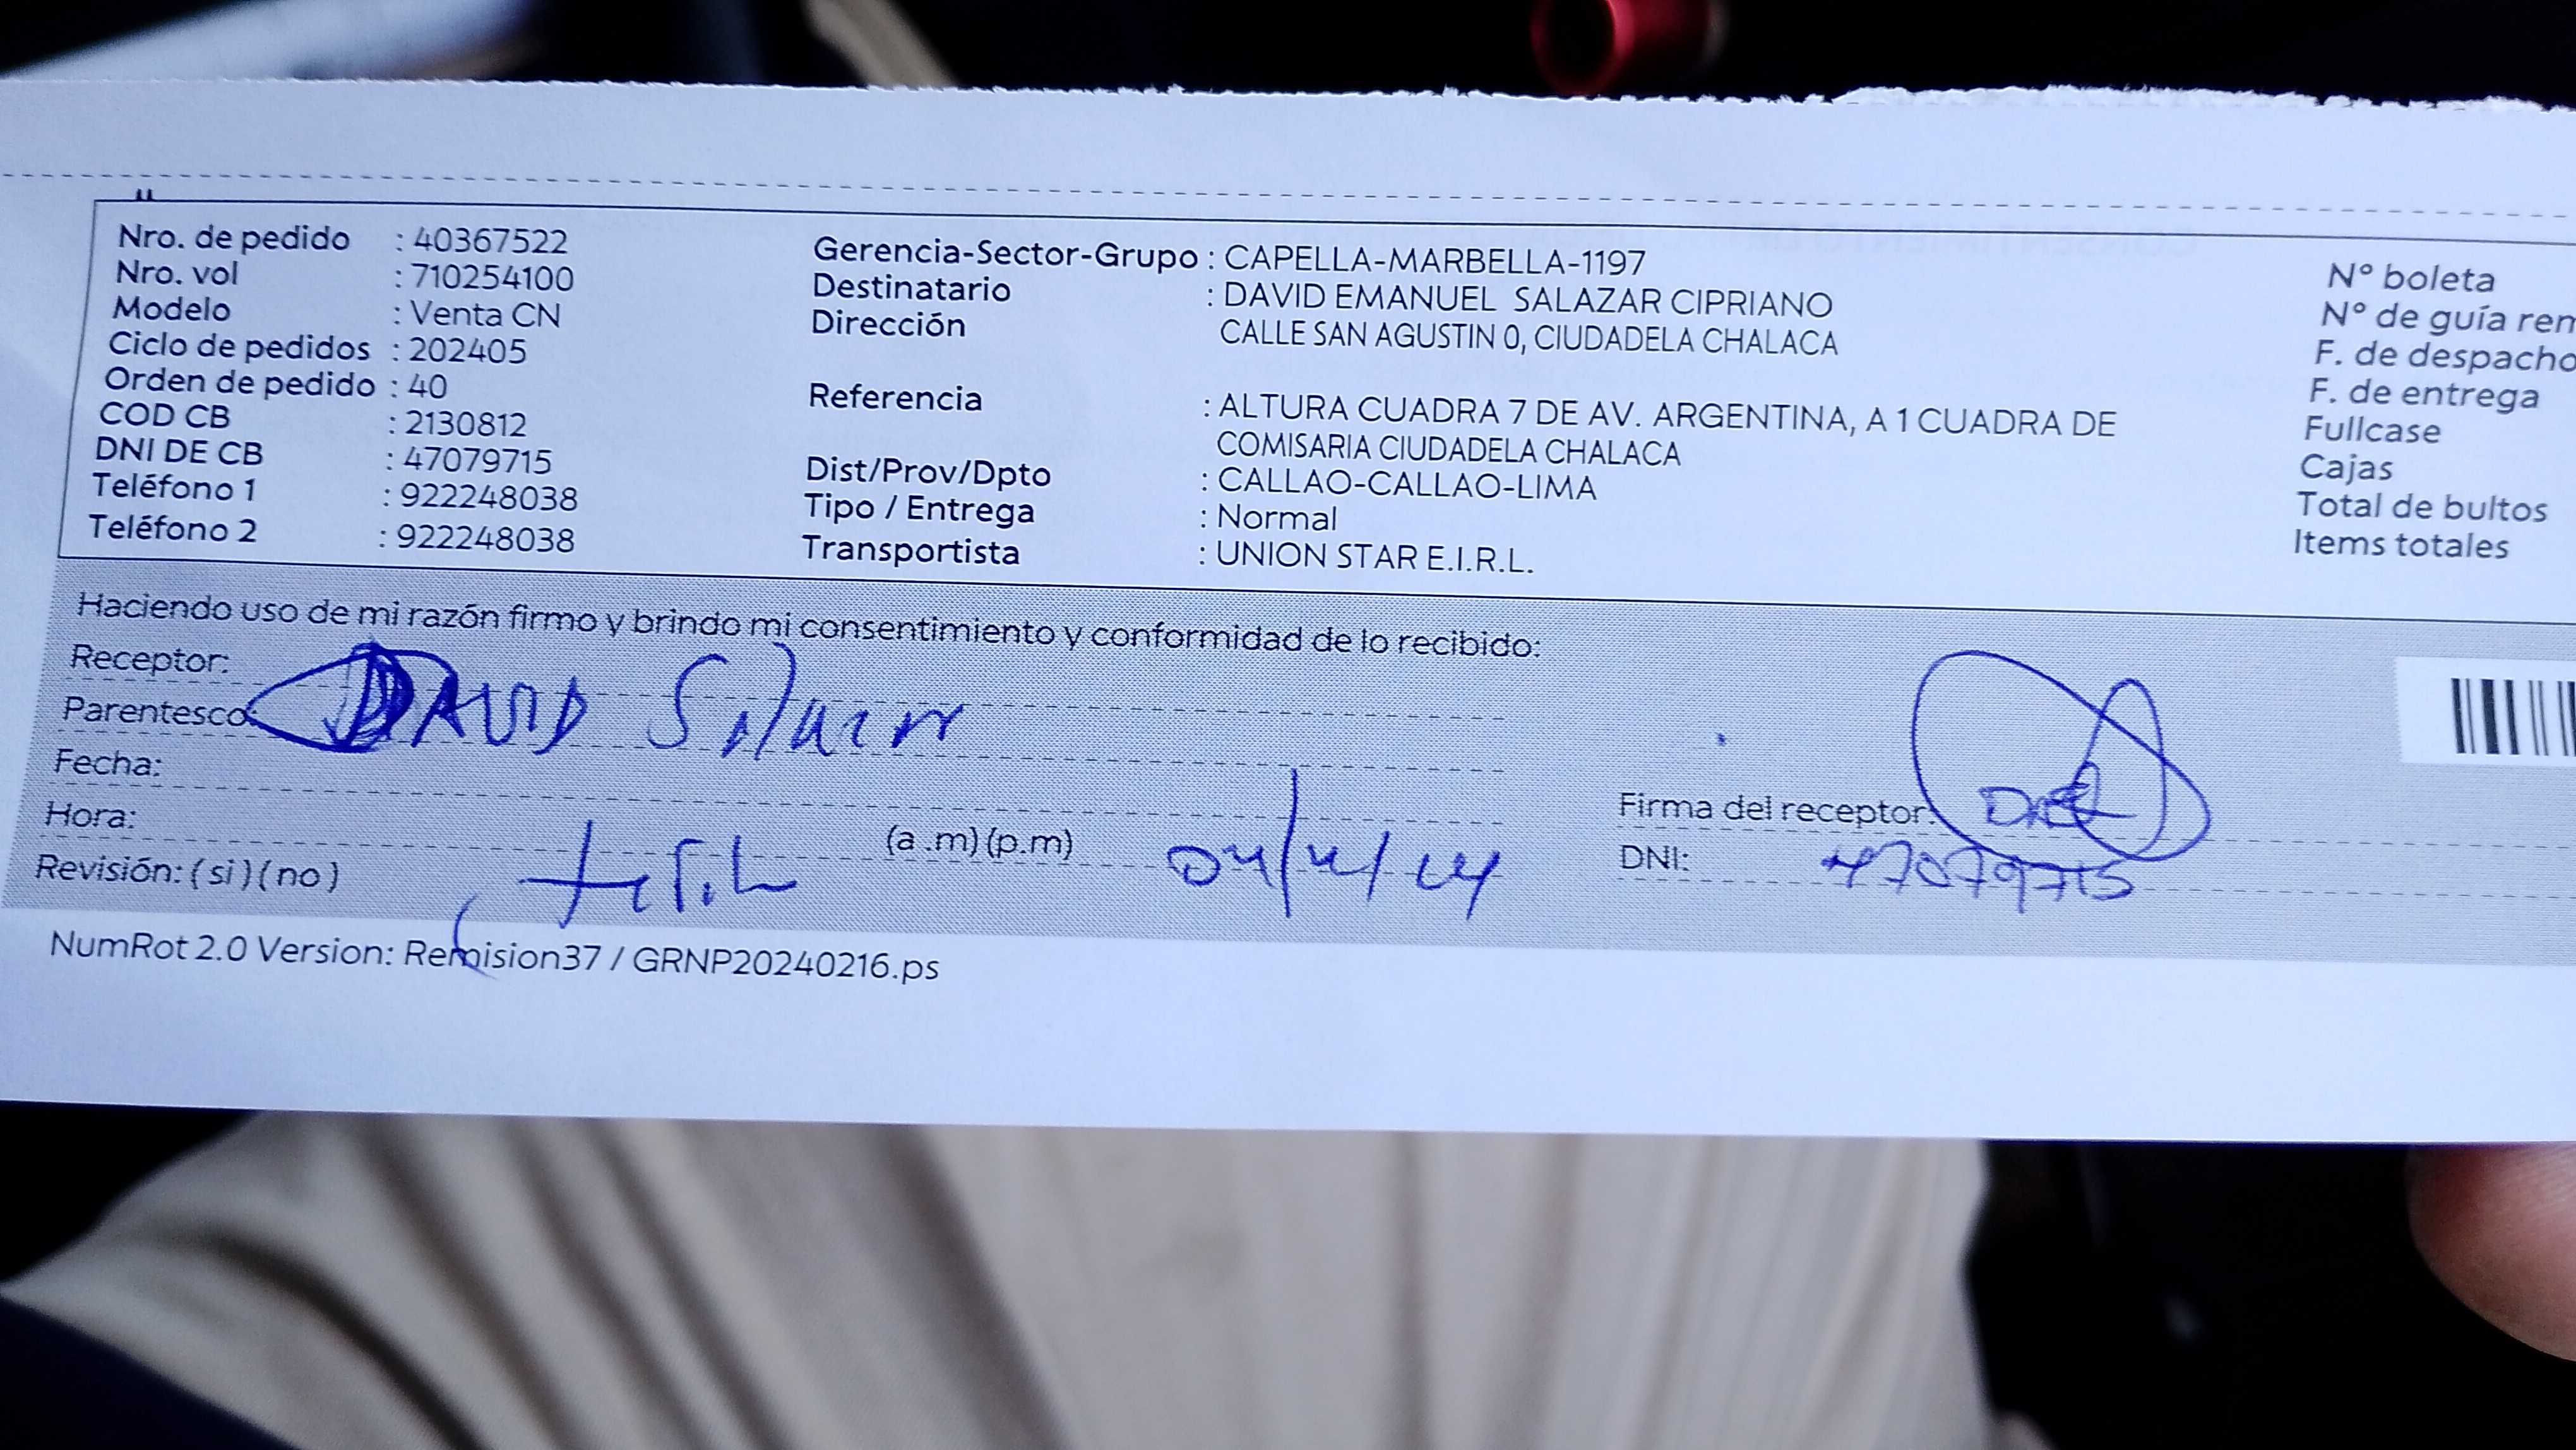 Nro. de pedido : 40367522
Nro. vol : 710254100
Modelo : Venta CN
Ciclo de pedidos : 202405
Orden de pedido : 40
COD CB : 2130812
DNI DE CB : 47079715
Teléfono 1 : 922248038
Teléfono 2 : 922248038
Gerencia-Sector-Grupo : CAPELLA-MARBELLA-1197
Destinatario : DAVID EMANUEL SALAZAR CIPRIANO
Dirección CALLE SAN AGUSTIN 0, CIUDADELA CHALACA
Referencia : ALTURA CUADRA 7 DE AV. ARGENTINA, A 1 CUADRA DE
COMISARIA CIUDADELA CHALACA
Dist/Prov/Dpto : CALLAO-CALLAO-LIMA
Tipo / Entrega : Normal
Transportista : UNION STAR E.I.R.L.
N° boleta
N° de guía rem
F. de despacho
F. de entrega
Fullcase
Cajas
Total de bultos
Items totales
Haciendo uso de mi razón firmo y brindo mi consentimiento y conformidad de lo recibido:
Receptor:
Parentesco: DAVID Salazar
Fecha:
Hora: (a .m) (p.m)
Revisión: ( si ) ( no )
Firma del receptor:
DNI: 47079715
NumRot 2.0 Version: Remision37 / GRNP20240216.ps